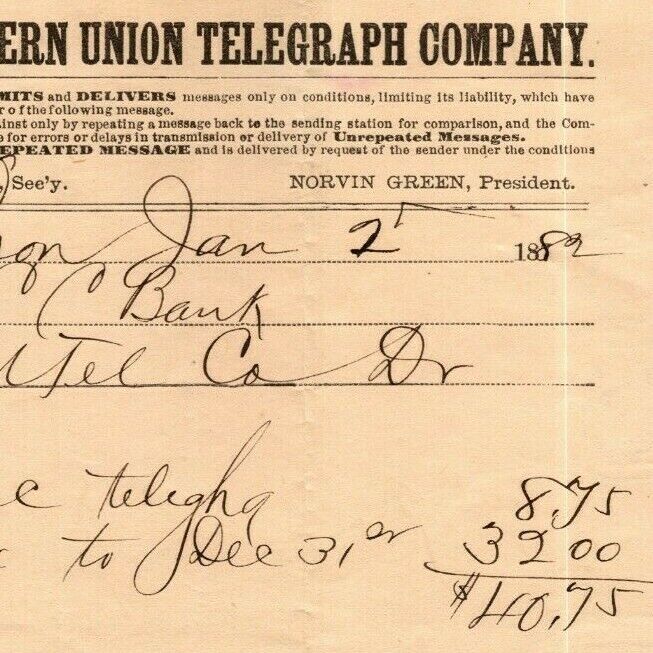 ERN UNION TELEGRAPH COMPANY.
MITS and DELIVERS messages only on conditions, limiting its liability, which have
r of the following message.
inst only by repeating a message back to the sending station for comparison, and the Com-
e for errors or delays in transmission or delivery of Unrepeated Messages.
EPEATED MESSAGE and is delivered by request of the sender under the conditions
, Sec'y. NORVIN GREEN, President.
gon Jan 2 1882
C Bank
U Tel Co Dr
c 8.75
c to Dec 31st 32 00
$40.75